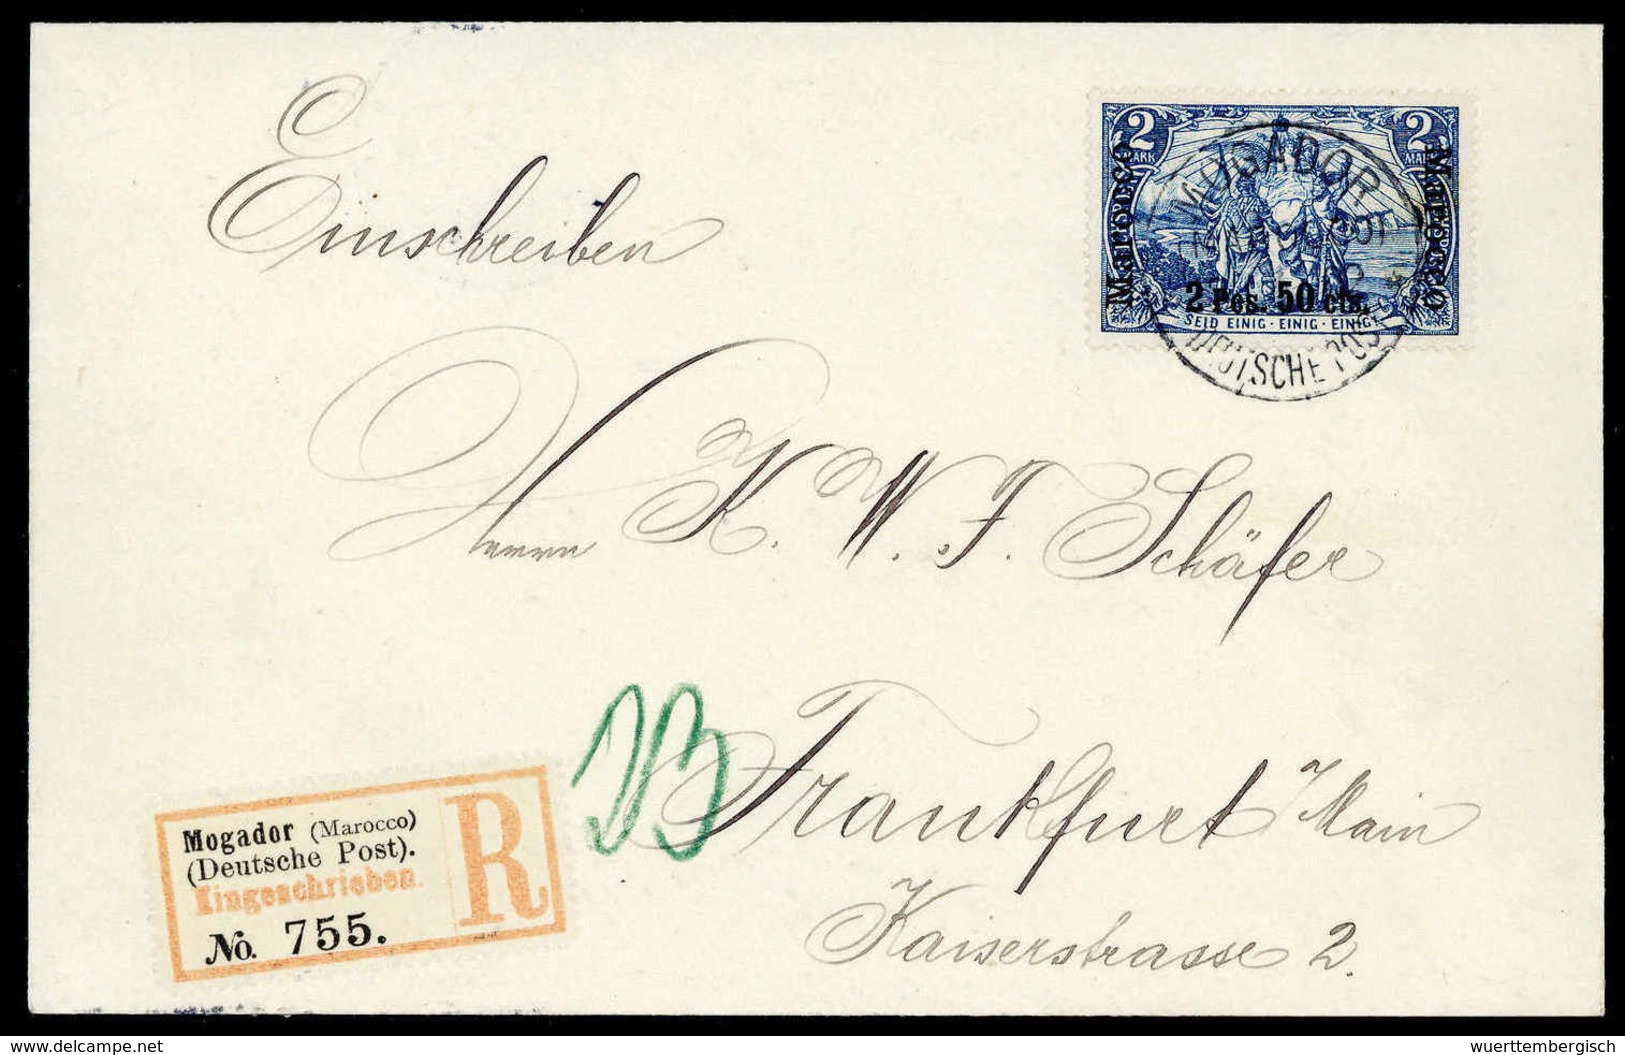 Einschreiben
2 MARK 2 MARK
Marocco Marocco
2 Pes. 50 cts.
SEID EINIG · EINIG · EINIG
MOGADOR
DEUTSCHE POST
Herrn K. W. F. Schäfer
Frankfurt / Main
Kaiserstrasse 2.
Mogador (Marocco)
(Deutsche Post).
Eingeschrieben.
No. 755.
R
www.delcampe.net
wuerttembergisch